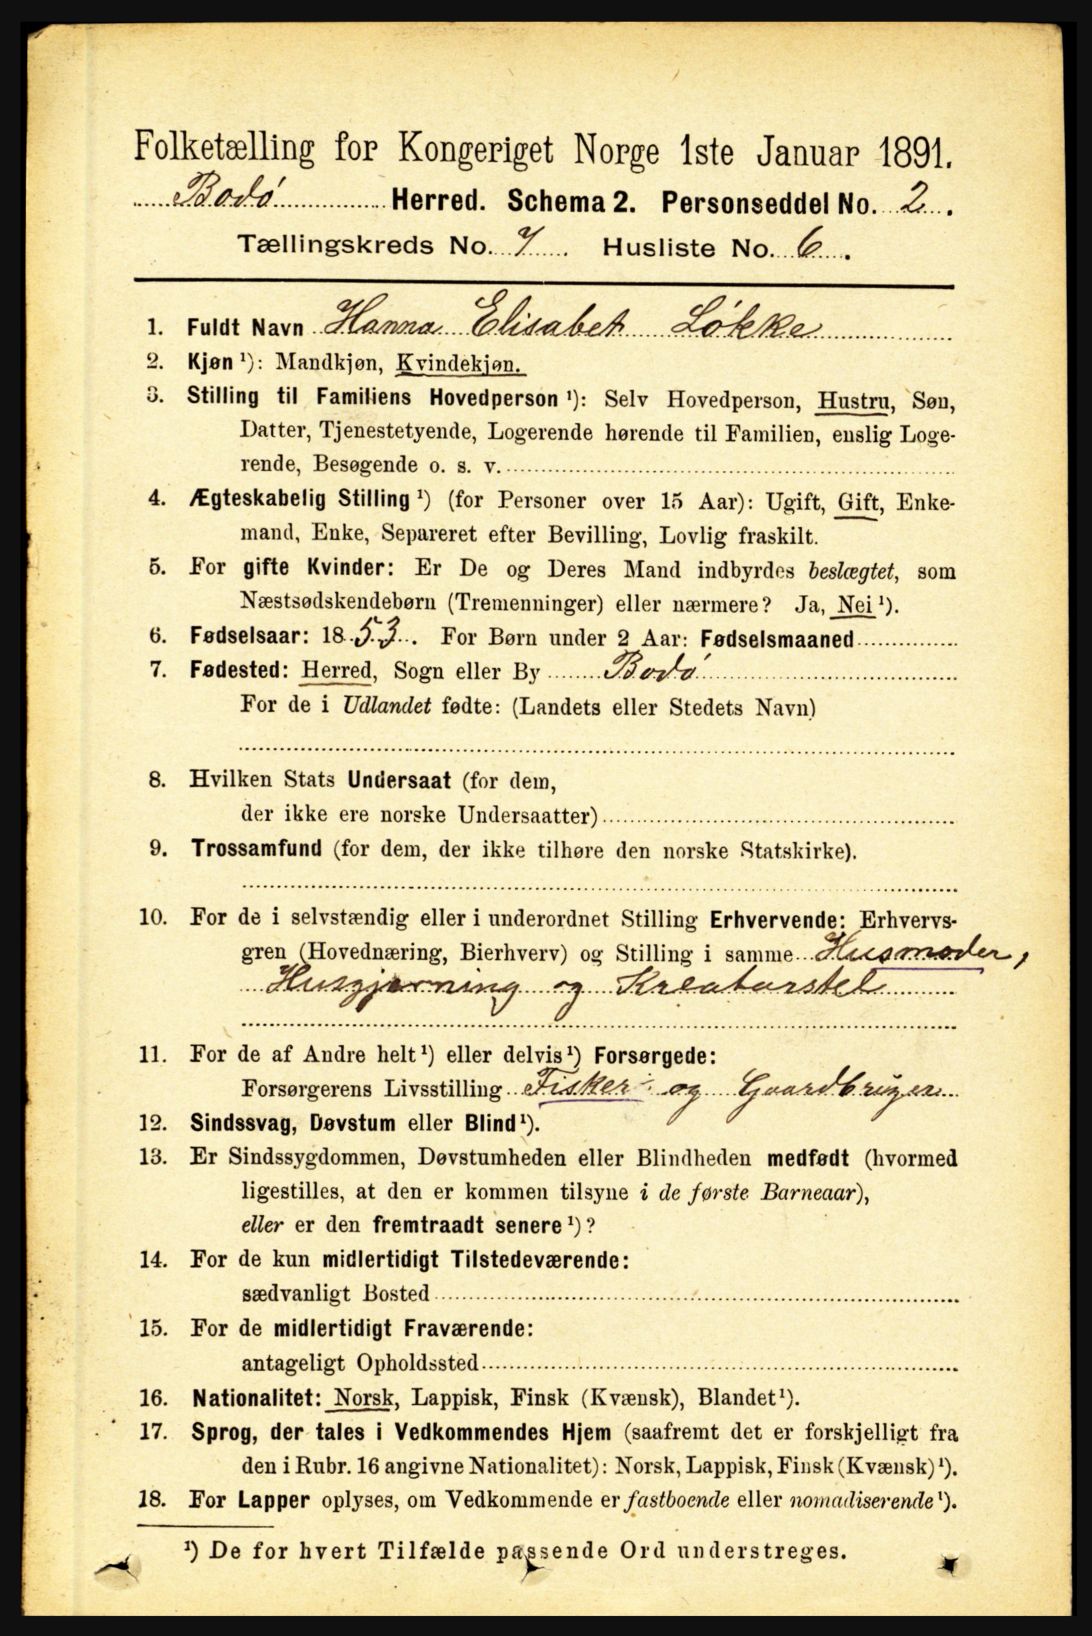 Folketælling for Kongeriget Norge 1ste Januar 1891.
Bodø Herred. Schema 2. Personseddel No. 2.
Tællingskreds No. 7. Husliste No. 6.
1. Fuldt Navn Hanna Elisabet Løkke
2. Kjøn ¹): Mandkjøn, Kvindekjøn.
3. Stilling til Familiens Hovedperson ¹): Selv Hovedperson, Hustru, Søn,
Datter, Tjenestetyende, Logerende hørende til Familien, enslig Loge-
rende, Besøgende o. s. v.
4. Ægteskabelig Stilling ¹) (for Personer over 15 Aar): Ugift, Gift, Enke-
mand, Enke, Separeret efter Bevilling, Lovlig fraskilt.
5. For gifte Kvinder: Er De og Deres Mand indbyrdes beslægtet, som
Næstsødskendebørn (Tremenninger) eller nærmere? Ja, Nei ¹).
6. Fødselsaar: 1853. For Børn under 2 Aar: Fødselsmaaned
7. Fødested: Herred, Sogn eller By Bodø
For de i Udlandet fødte: (Landets eller Stedets Navn)
8. Hvilken Stats Undersaat (for dem,
der ikke ere norske Undersaatter)
9. Trossamfund (for dem, der ikke tilhøre den norske Statskirke).
10. For de i selvstændig eller i underordnet Stilling Erhvervende: Erhvervs-
gren (Hovednæring, Bierhverv) og Stilling i samme Husmoder,
Husgjerning og Kreaturstel
11. For de af Andre helt ¹) eller delvis ¹) Forsørgede:
Forsørgerens Livsstilling Fisker og Gaardbruger
12. Sindssvag, Døvstum eller Blind ¹).
13. Er Sindssygdommen, Døvstumheden eller Blindheden medfødt (hvormed
ligestilles, at den er kommen tilsyne i de første Barneaar),
eller er den fremtraadt senere ¹)?
14. For de kun midlertidigt Tilstedeværende:
sædvanligt Bosted
15. For de midlertidigt Fraværende:
antageligt Opholdssted
16. Nationalitet: Norsk, Lappisk, Finsk (Kvænsk), Blandet ¹).
17. Sprog, der tales i Vedkommendes Hjem (saafremt det er forskjelligt fra
den i Rubr. 16 angivne Nationalitet): Norsk, Lappisk, Finsk (Kvænsk) ¹).
18. For Lapper oplyses, om Vedkommende er fastboende eller nomadiserende ¹).
¹) De for hvert Tilfælde passende Ord understreges.